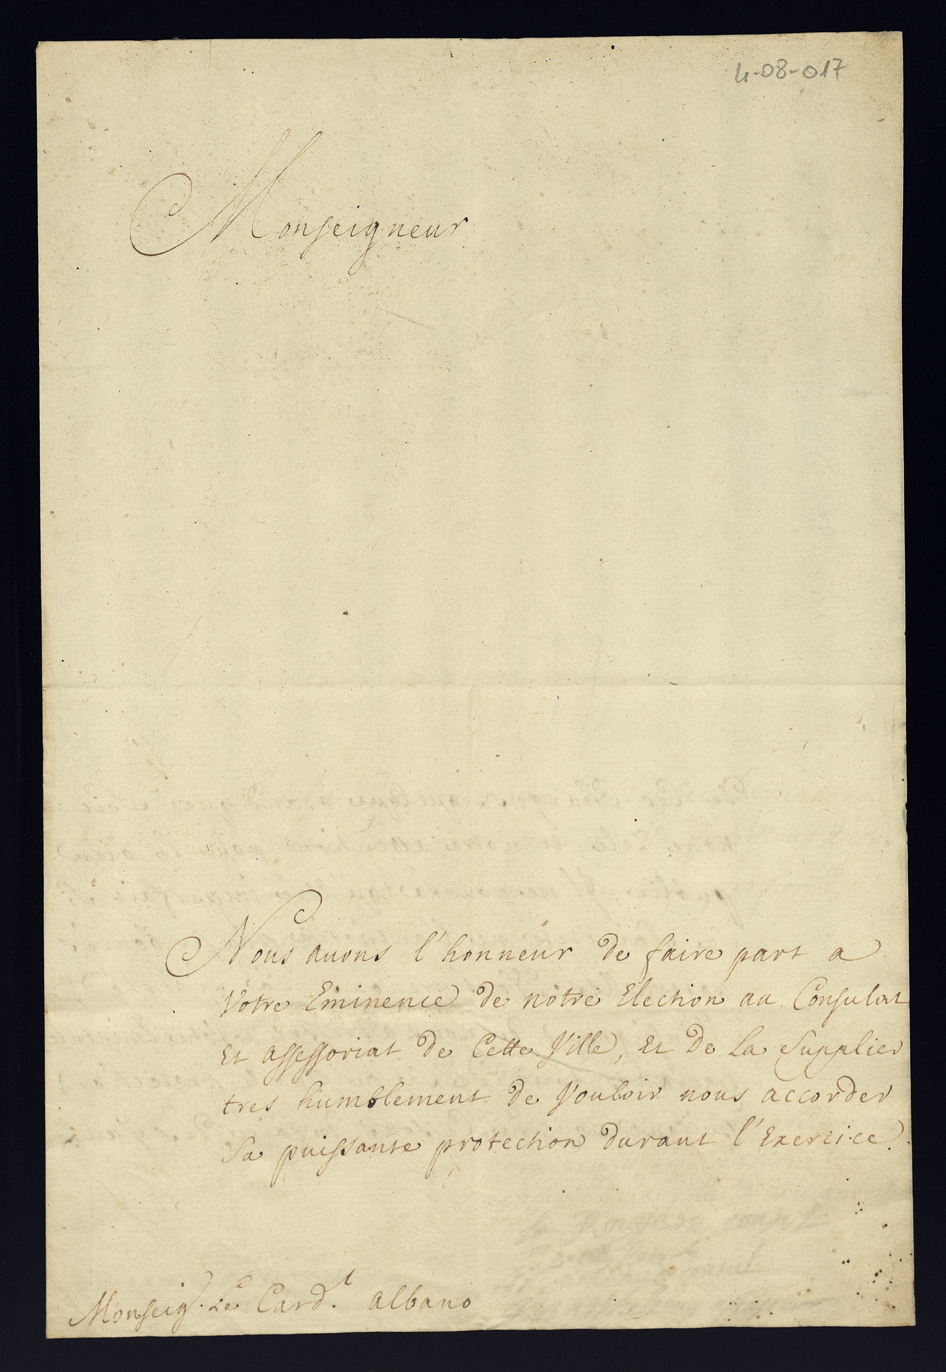 4-08-017
Monseigneur
Nous auons l'honneur de faire part a
Votre Eminence de notre Election au Consulat
Et assessoriat de Cette Ville, Et de La Supplier
tres humblement de Vouloir nous accorder
Sa puissante protection durant l'Exercice
Monseigr. Le Cardl. albano